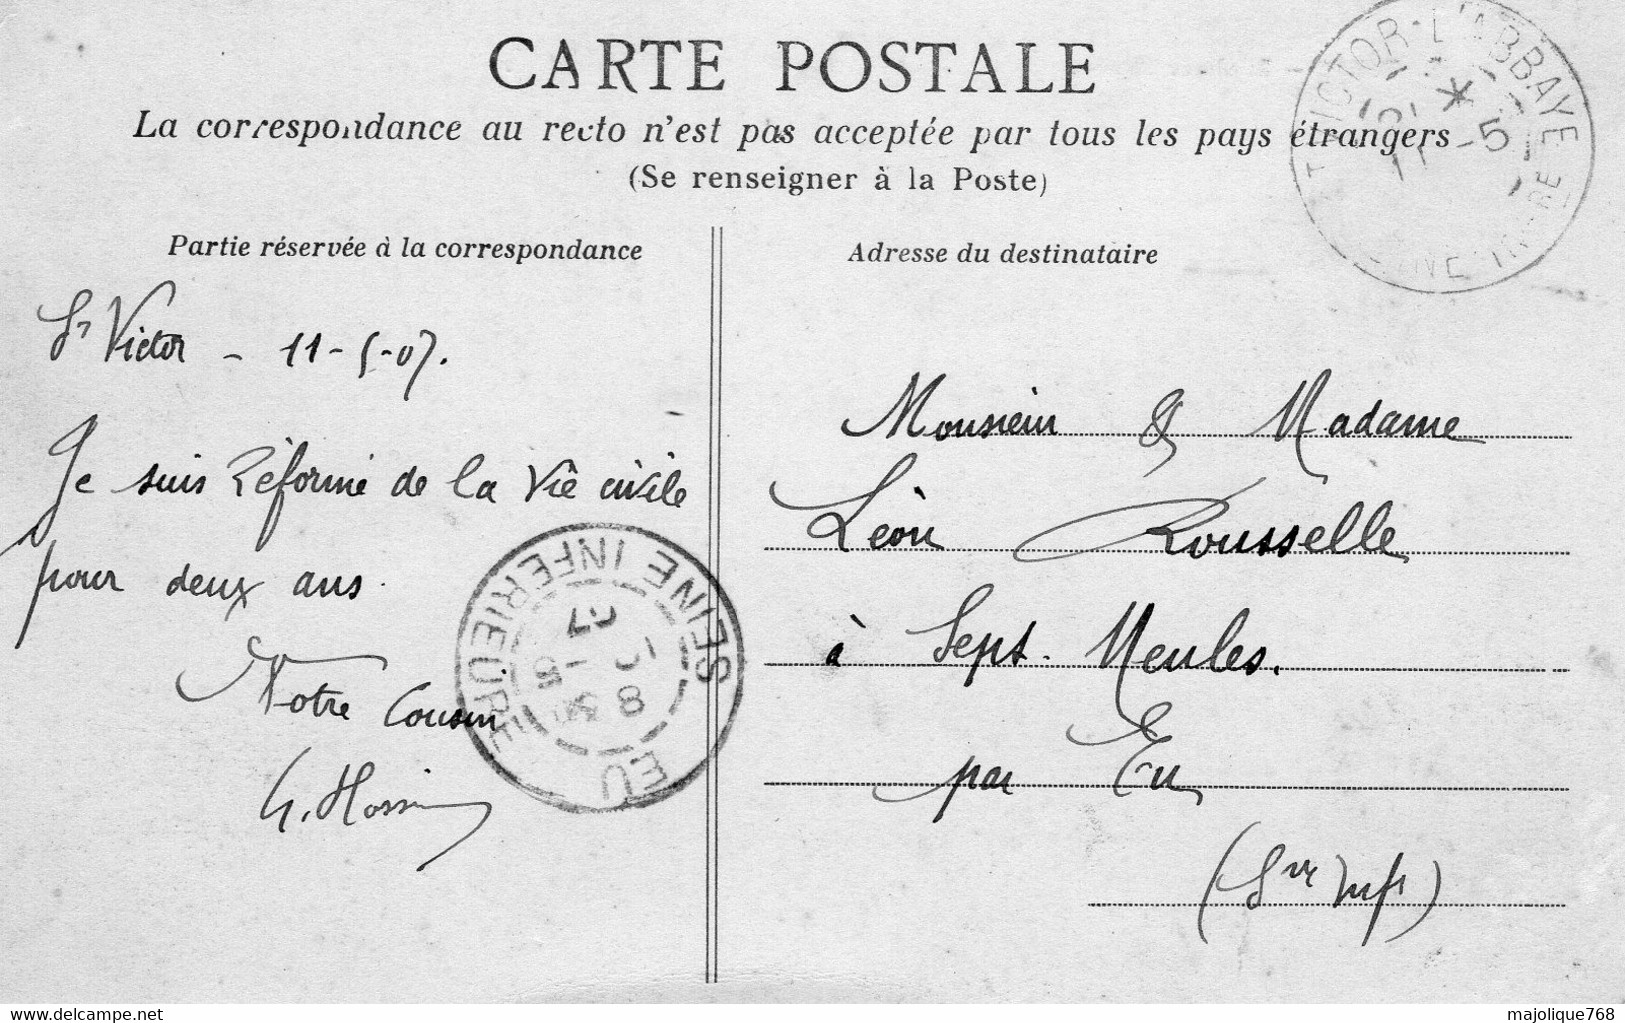 CARTE POSTALE
La correspondance au recto n'est pas acceptée par tous les pays étrangers
(Se renseigner à la Poste)
Partie réservée à la correspondance
Adresse du destinataire
St Victor - 11-5-07.
Je suis Réformé de la Vie civile
pour deux ans.
Votre Cousin
Monsieur & Madame
Léon Rousselle
à Sept. Meules.
par Eu
(Sne Infr)
T VICTOR-L'ABBAYE
11 -5
SEINE INFERIEURE
EU
8
-5
07
www.delcampe.net
majolique768